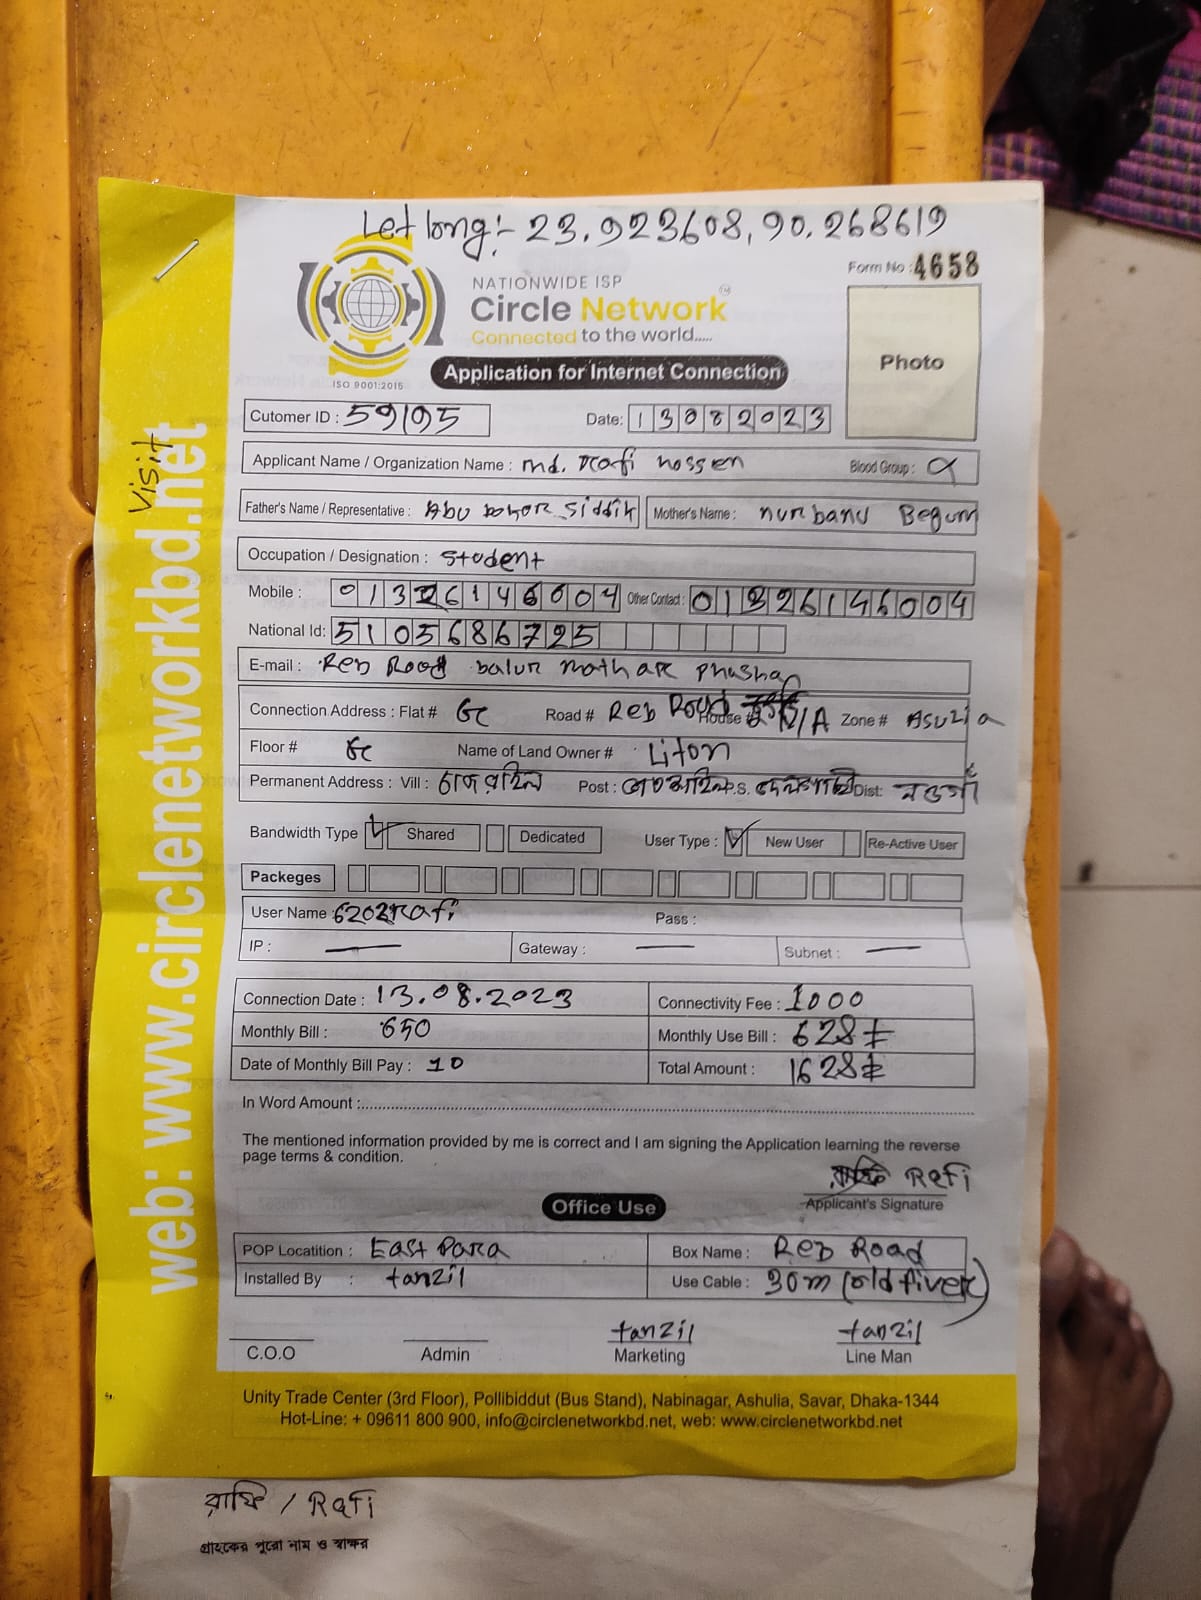 Let long:- 23.923608, 90.268619
Form No : 4658
NATIONWIDE ISP
Circle Network TM
Connected to the world.....
ISO 9001:2015
Application for Internet Connection
Photo
Cutomer ID : 59105 Date: 13082023
Applicant Name / Organization Name : md. Rafi hossen Blood Group :
Father's Name / Representative : Abu bokor siddik Mother's Name : nurbanu Begum
Occupation / Designation : Student
Mobile : 01326146004 Other Contact : 01326146004
National Id: 5105686725
E-mail : Reb Road balur math
Connection Address : Flat # GC Road # Reb Road House # 12/A Zone # Asuzia
Floor # GC Name of Land Owner # Liton
Permanent Address : Vill : Post : P.S. Dist:
Bandwidth Type Shared Dedicated User Type : New User Re-Active User
Packeges
User Name : 6202Rafi Pass :
IP : — Gateway : — Subnet : —
Connection Date : 13.08.2023 Connectivity Fee : 1000
Monthly Bill : 650 Monthly Use Bill : 628
Date of Monthly Bill Pay : 10 Total Amount : 1628
In Word Amount :
The mentioned information provided by me is correct and I am signing the Application learning the reverse
page terms & condition.
Refi
Applicant's Signature
Office Use
POP Locatition : East Para Box Name : Reb Road
Installed By : tanzil Use Cable : 30m (old fiver)
tanzil tanzil
C.O.O Admin Marketing Line Man
Unity Trade Center (3rd Floor), Pollibiddut (Bus Stand), Nabinagar, Ashulia, Savar, Dhaka-1344
Hot-Line: + 09611 800 900, info@circlenetworkbd.net, web: www.circlenetworkbd.net
Visit
web: www.circlenetworkbd.net
রাফি / Rafi
গ্রাহকের পুরো নাম ও স্বাক্ষর